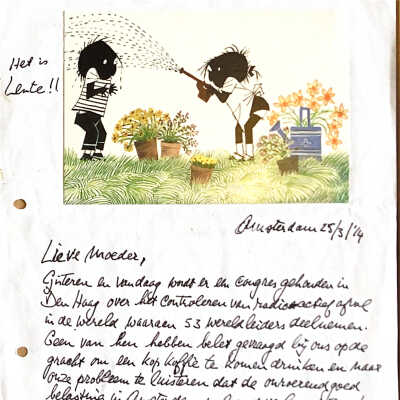 Het is
Lente!!
Amsterdam 25/3/'14
Lieve Moeder,
Gisteren en vandaag wordt er een congres gehouden in
Den Haag over het controleren van radioactief afval
in de wereld waaraan 53 wereldleiders deelnemen.
Geen van hen hebben belet gevraagd bij ons op de
gracht om een kop koffie te komen drinken en naar
onze probleem te luisteren dat de onroerendgoed
belasting in